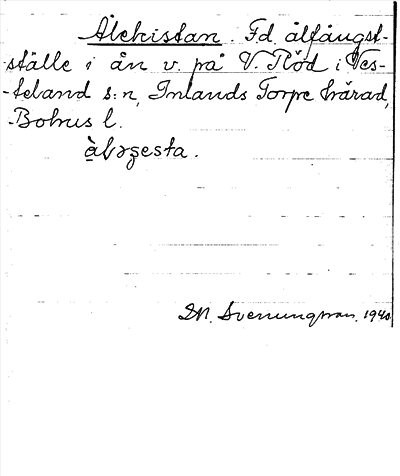 Ålekistan. Fd. ålfångst-
ställe i ån v. på V. Röd i Ves-
-terland s:n, Inlands Torpe härad,
Bohus l.
S. M. Svenungsson. 1940